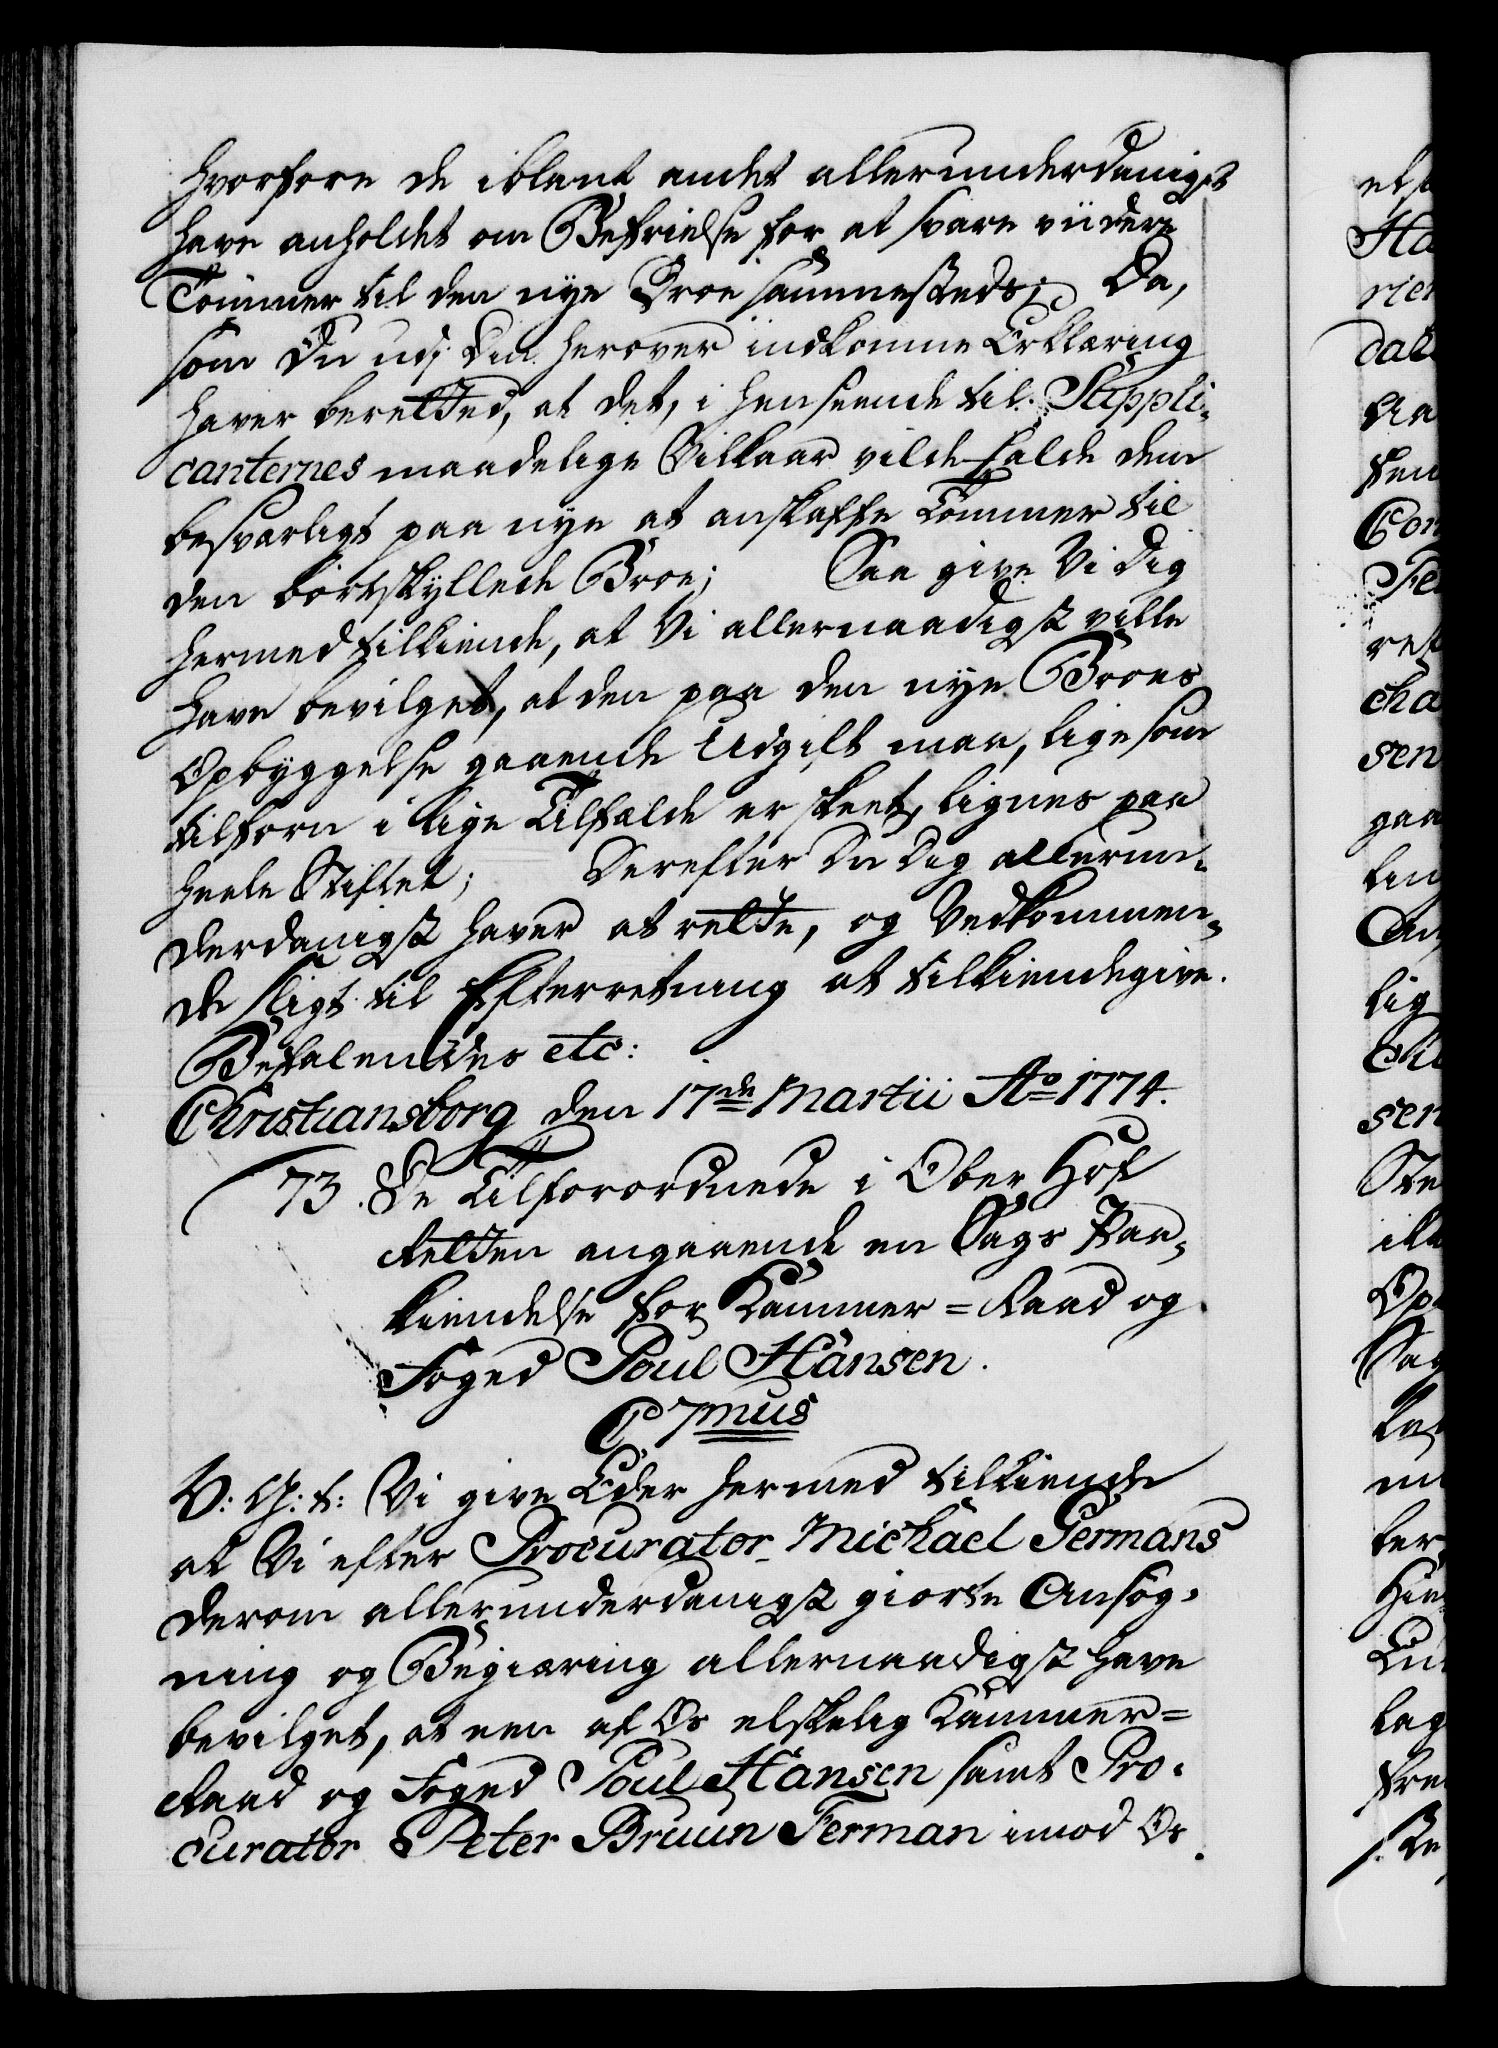 hvorfore de iblant andet allerunderdanigst
have anholdet om Befrielse for at svare viidere
Tømmer til den nye Broe sammesteds; Da,
som Du udj Din herover indkomne Erklæring
haver berettet, at det, i Henseende til Suppli-
canternes maadelige Vilkaar vilde falde dem
besværligt paa nye at anskaffe Tømmer til
den bortskyllede Broe; Saa give Vi Dig
hermed tilkiende, at Vi allernaadigst ville
have bevilget, at den paa den nye Broes
Opbyggelse gaaende Udgift maa, lige som
tilforn i lige Tilfælde er skeet, lignes paa
heele Stiftet; Derefter Du Dig allerun-
derdanigst haver at rette, og Vedkommen-
de sligt til Efterretning at tilkiendegive.
Befalendes etc:
Christiansborg den 17de Martii Ao 1774.
73. De Tilforordnede i Ober Hof
Retten angaaende en Sags Paa-
kiendelse for Kammer-Raad og
Foged Poul Hansen.
C 7mus
V: G: t: Vi give Eder hermed tilkiende
at Vi efter Procurator Michael Germans
derom allerunderdanigst giorte Ansøg-
ning og Begiæring allernaadigst have
bevilget, at een af Os elskelig Kammer-
Raad og Foged Poul Hansen samt Pro-
curator Peter Bruun Ferman imod Os